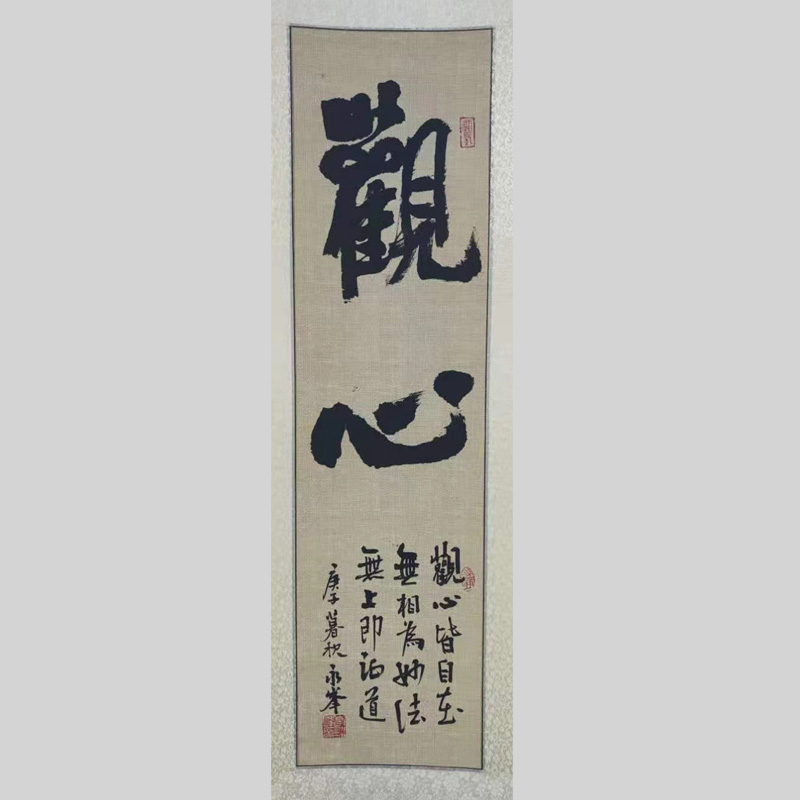 觀
心
觀心皆自在
無相為妙法
無上即詣道
庚子暮秋 永峰